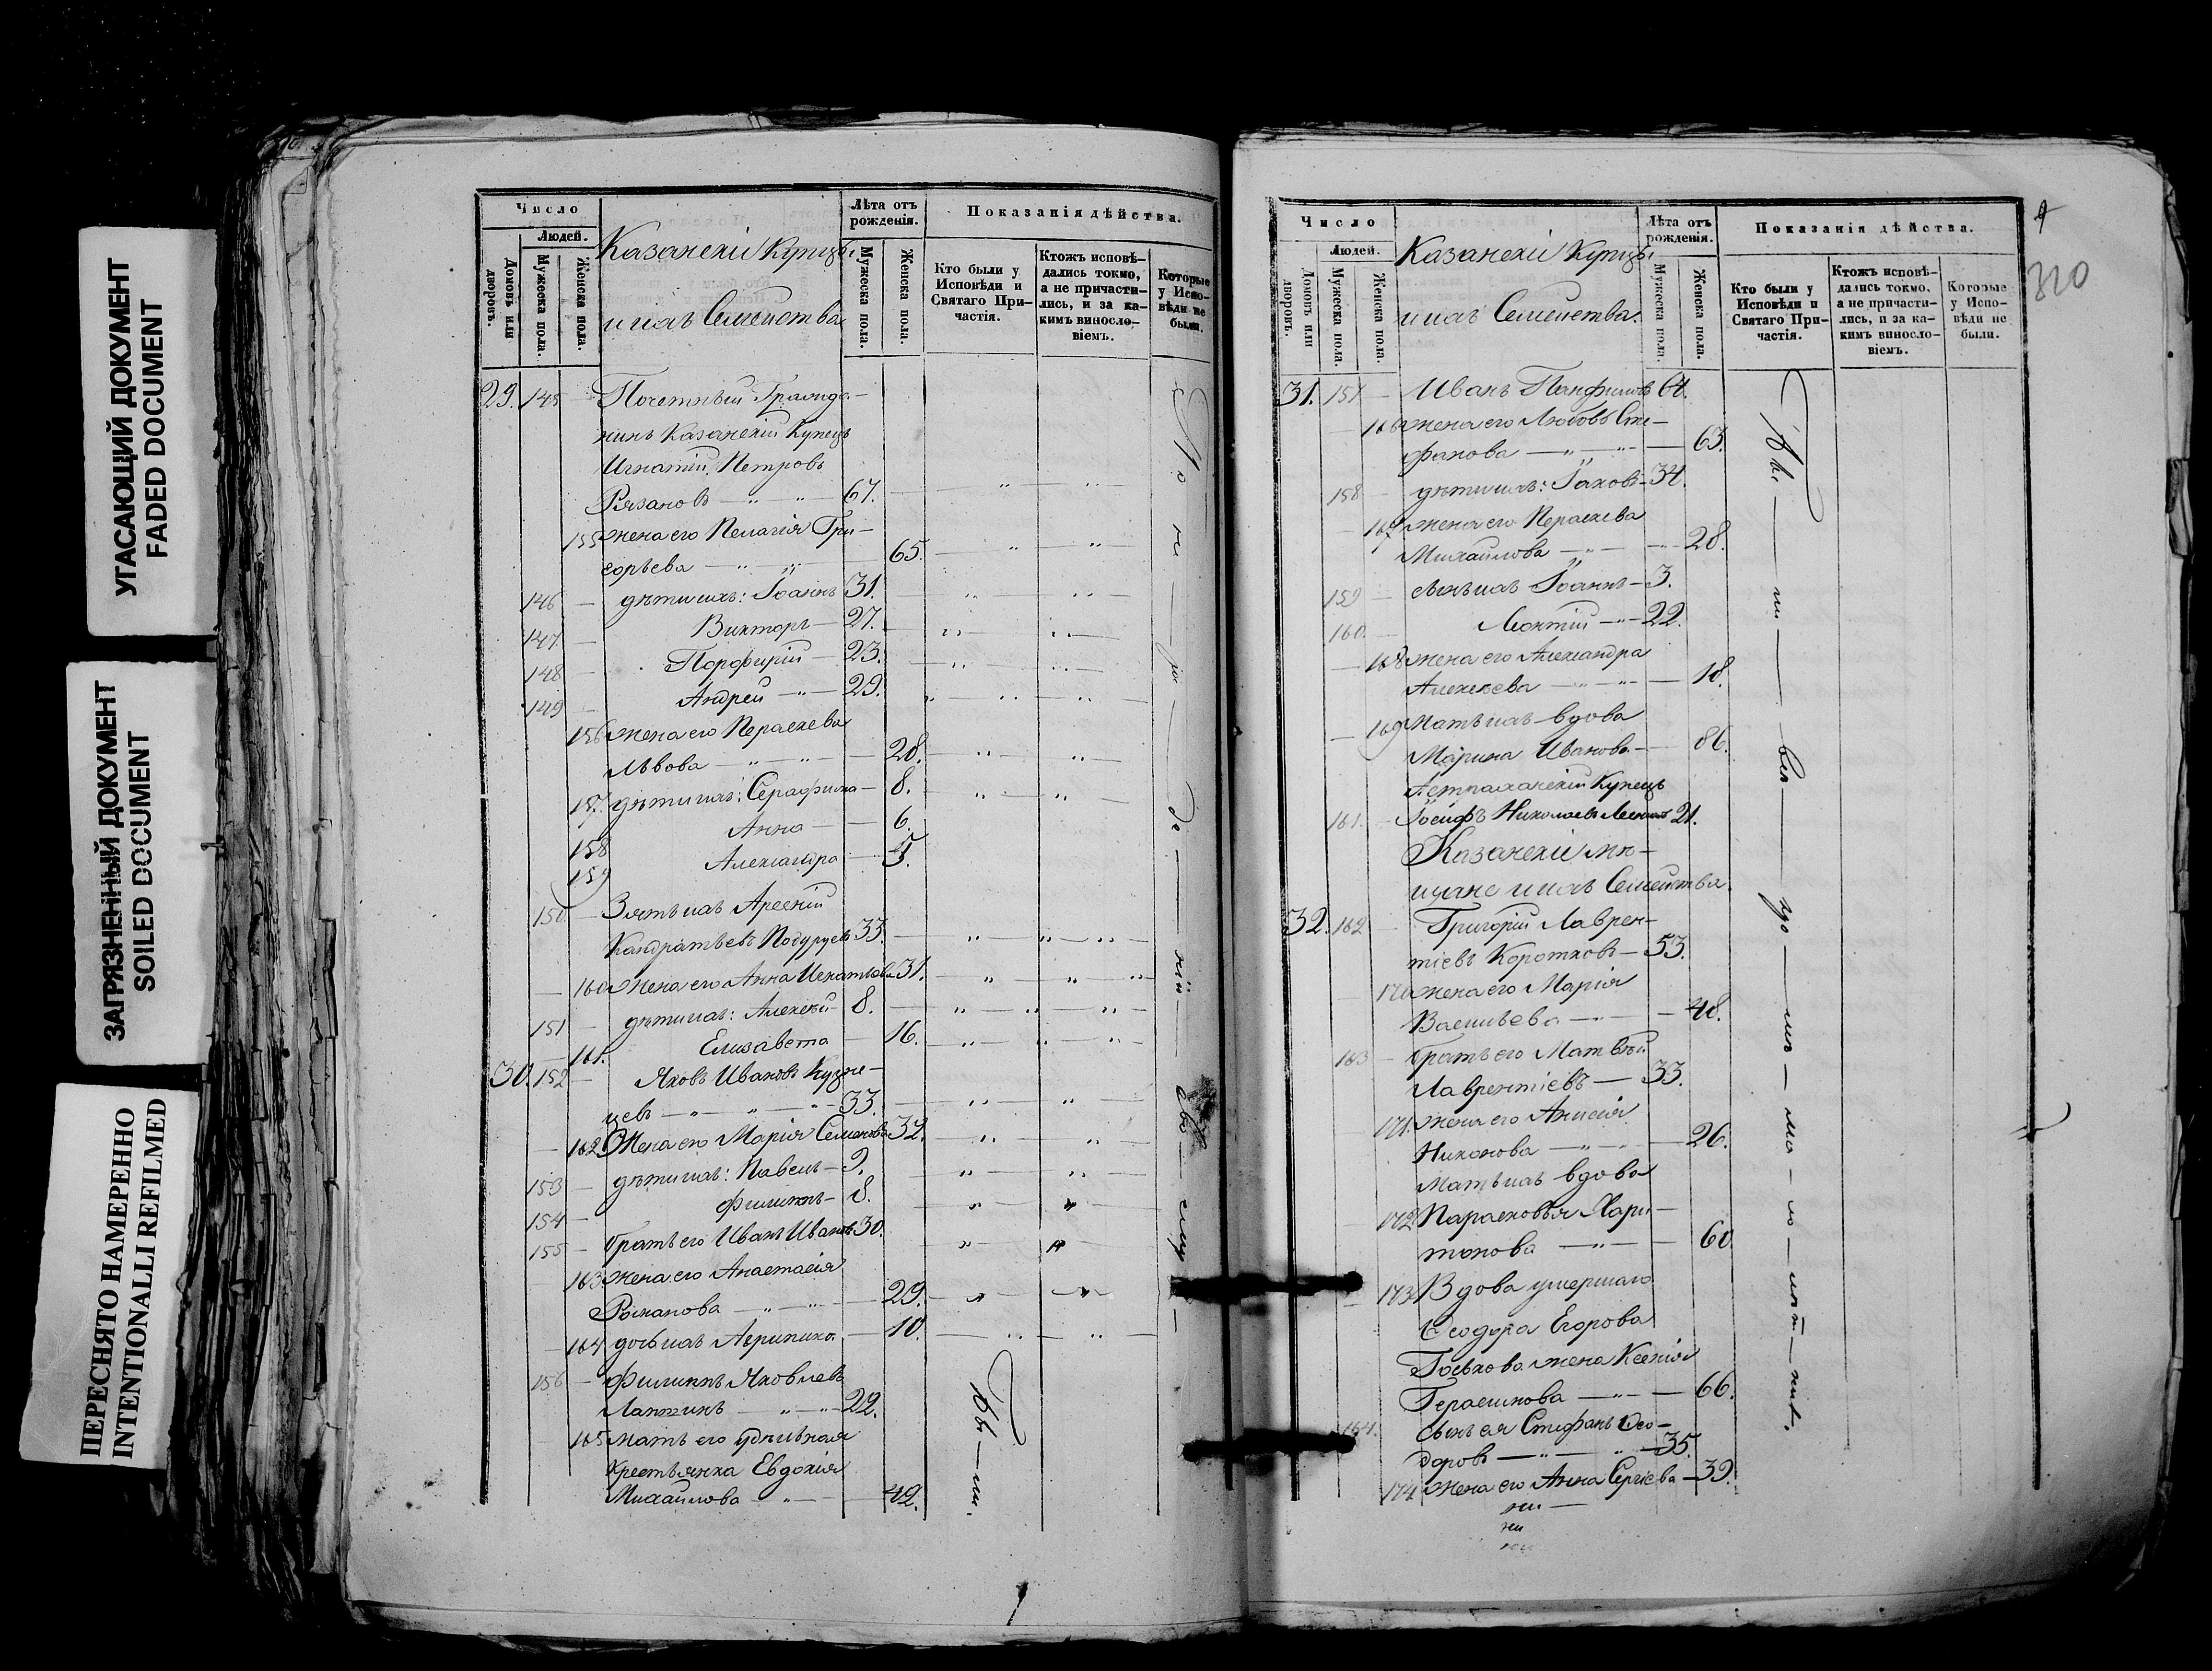 УГАСАЮЩИЙ ДОКУМЕНТ
FADED DOCUMENT
ЗАГРЯЗНЕННЫЙ ДОКУМЕНТ
SOILED DOCUMENT
ПЕРЕСНЯТО НАМЕРЕННО
INTENTIONALLI REFILMED
Число
Людей.
Домовъ или дворовъ.
Мужеска пола.
Женска пола.
Казанскіи Купцы
и ихъ Семейства
Лѣта отъ рожденія.
Мужеска пола.
Женска пола.
Показанія дѣйства.
Кто были у Исповѣди и Святаго Причастія.
Ктожъ исповѣдались токмо, а не причастились, и за какимъ винословіемъ.
Которые у Исповѣди не были.
29. 145 Почетный Гражда-
нинъ Казанскій Купецъ
Игнатій Петровъ
Рязановъ — " — " — 67.
155 жена его Пелагія Гри-
горьева — " — " — 65.
146 — дѣти ихъ: Іоаннъ 31.
147. — Викторъ — 27.
148 — Порфирій — 23.
149 — Андрей — " — 29.
156 жена его Параскева
Львова — " — " — 28.
157. дѣти ихъ: Серафима — 8.
158 Анна — 6.
159 Александра — 5.
150. — Зять ихъ Арсеній
Кандратьевъ 33.
160 Жена его Анна Игнатьева 31.
151 — дѣти ихъ: Алексѣй — 8.
161. Елизавета — 16.
30. 152 — Яковъ Ивановъ Кузне-
цевъ — " — " — " 33.
162. Жена его Марія Семенова 32.
153 — дѣти ихъ: Павелъ — 9.
154 — Филиппъ — 8.
155 — братъ его Иванъ Ивановъ 30.
163 жена его Анастасія
Романова — " — " — 29.
164 дочь ихъ — 10.
156 — Филиппъ Яковлевъ
Лаптинъ — " — " — 22.
165 мать его удѣльная
Крестьянка Евдокія
Михайлова — " — 42.
Бы — ли.
Число
Людей.
Домовъ или дворовъ.
Мужеска пола.
Женска пола.
Казанскіи Купцы
и ихъ Семейства.
Лѣта отъ рожденія.
Мужеска пола.
Женска пола.
Показанія дѣйства.
Кто были у Исповѣди и Святаго Причастія.
Ктожъ исповѣдались токмо, а не причастились, и за какимъ винословіемъ.
Которые у Исповѣди не были.
310
31. 157 — Иванъ Панфиловъ 64.
166 жена его Любовь Сте-
фанова — " — " — 63.
158 — дѣти ихъ: Іаковъ — 34.
167 жена его Параскева
Михайлова — " — 28.
159 — сынъ ихъ Іоаннъ — 3.
160. — Леонтій — " — 22.
168 жена его Александра
Алексѣева — " — " — 18.
169 Мать ихъ вдова
Марина Иванова — 86.
Астраханскій Купецъ
161. — Іосифъ Николаевъ 21.
Казанскіи мѣ-
щане и ихъ Семейства.
32. 162 Григорій Лаврен-
тіевъ Коротковъ — 53.
170 жена его Марія
Васильева — " — 48.
163 — братъ его Матвѣй
Лаврентіевъ — 33.
171. жена его Анисія
Никонова — " — 26.
Мать ихъ вдова
172 Парасковья Хари-
тонова — " — 60
173 Вдова умершаго
Ѳеодора Егорова
жена Ксенія
Герасимова — " — 66.
164. Сынъ ея Стефанъ Ѳео-
доровъ — " — " — 35.
174 жена его Анна Сергіева — 39.